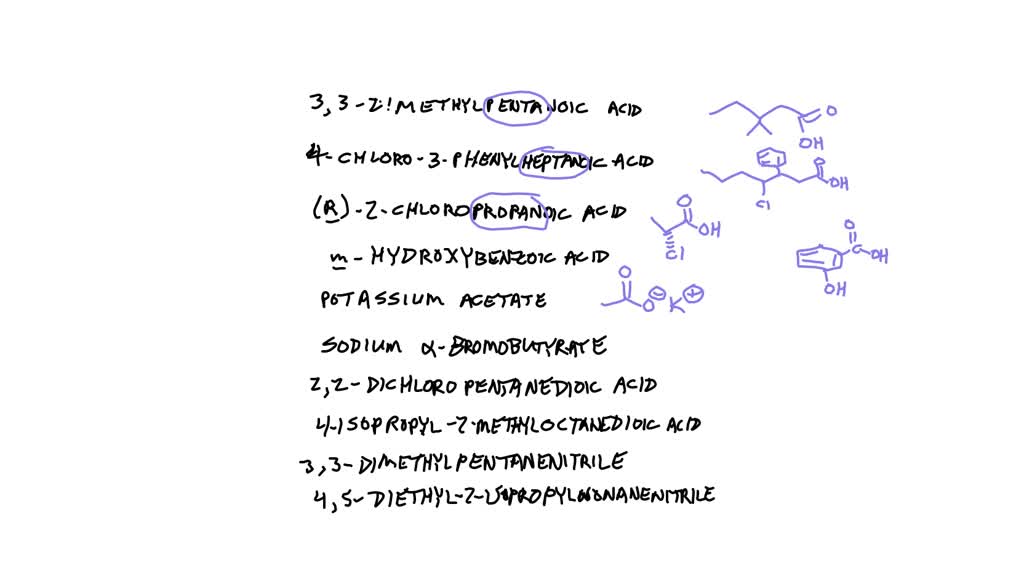 3,3-2!METHYLPENTANOIC ACID
O
OH
4-CHLORO-3-PHENYLHEPTANOIC ACID
O
OH
Cl
(R)-2-CHLOROPROPANOIC ACID
O
OH
Cl
m-HYDROXYBENZOIC ACID
O
C-OH
OH
POTASSIUM ACETATE
O
O⊖ K⊕
SODIUM α-BROMOBUTYRATE
2,2-DICHLOROPENTANEDIOIC ACID
4-ISOPROPYL-2-METHYLOCTANEDIOIC ACID
3,3-DIMETHYLPENTANENITRILE
4,5-DIETHYL-2-ISOPROPYLNONANENITRILE